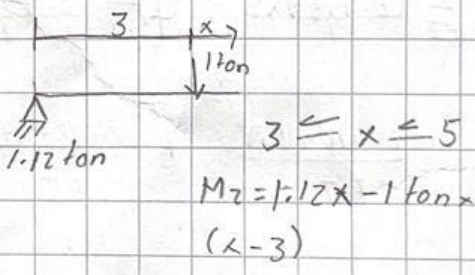 3 x
1 ton
1.12 ton
3 ≤ x ≤ 5
M2 = 1.12x - 1 ton x
(x-3)